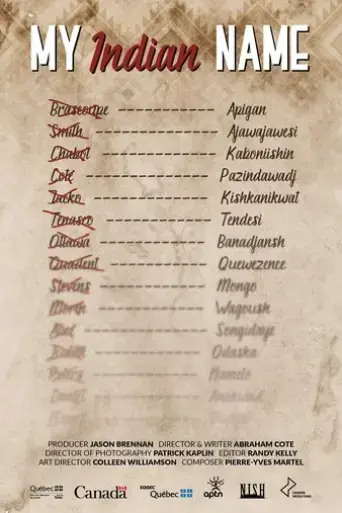 MY Indian NAME
Brascoupe ---------------- Apigan
Smith ---------------- Ajawajawesi
Chabot ---------------- Kaboniishin
Cote ---------------- Pazindawadj
Jacko ---------------- Kishkanikwat
Tenasco ---------------- Tendesi
Ottawa ---------------- Banadjansh
Ouadent ---------------- Quewezence
Stevens ---------------- Mongo
---------------- Wagoush
----------------
---------------- Odaska
PRODUCER JASON BRENNAN DIRECTOR & WRITER ABRAHAM COTE
DIRECTOR OF PHOTOGRAPHY PATRICK KAPLIN EDITOR RANDY KELLY
ART DIRECTOR COLLEEN WILLIAMSON COMPOSER PIERRE-YVES MARTEL
Québec Canada SODEC Québec aptn NISH